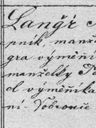 Langr
pník, manž
gra výměni
manželky
d výměníka
ní Dobronic